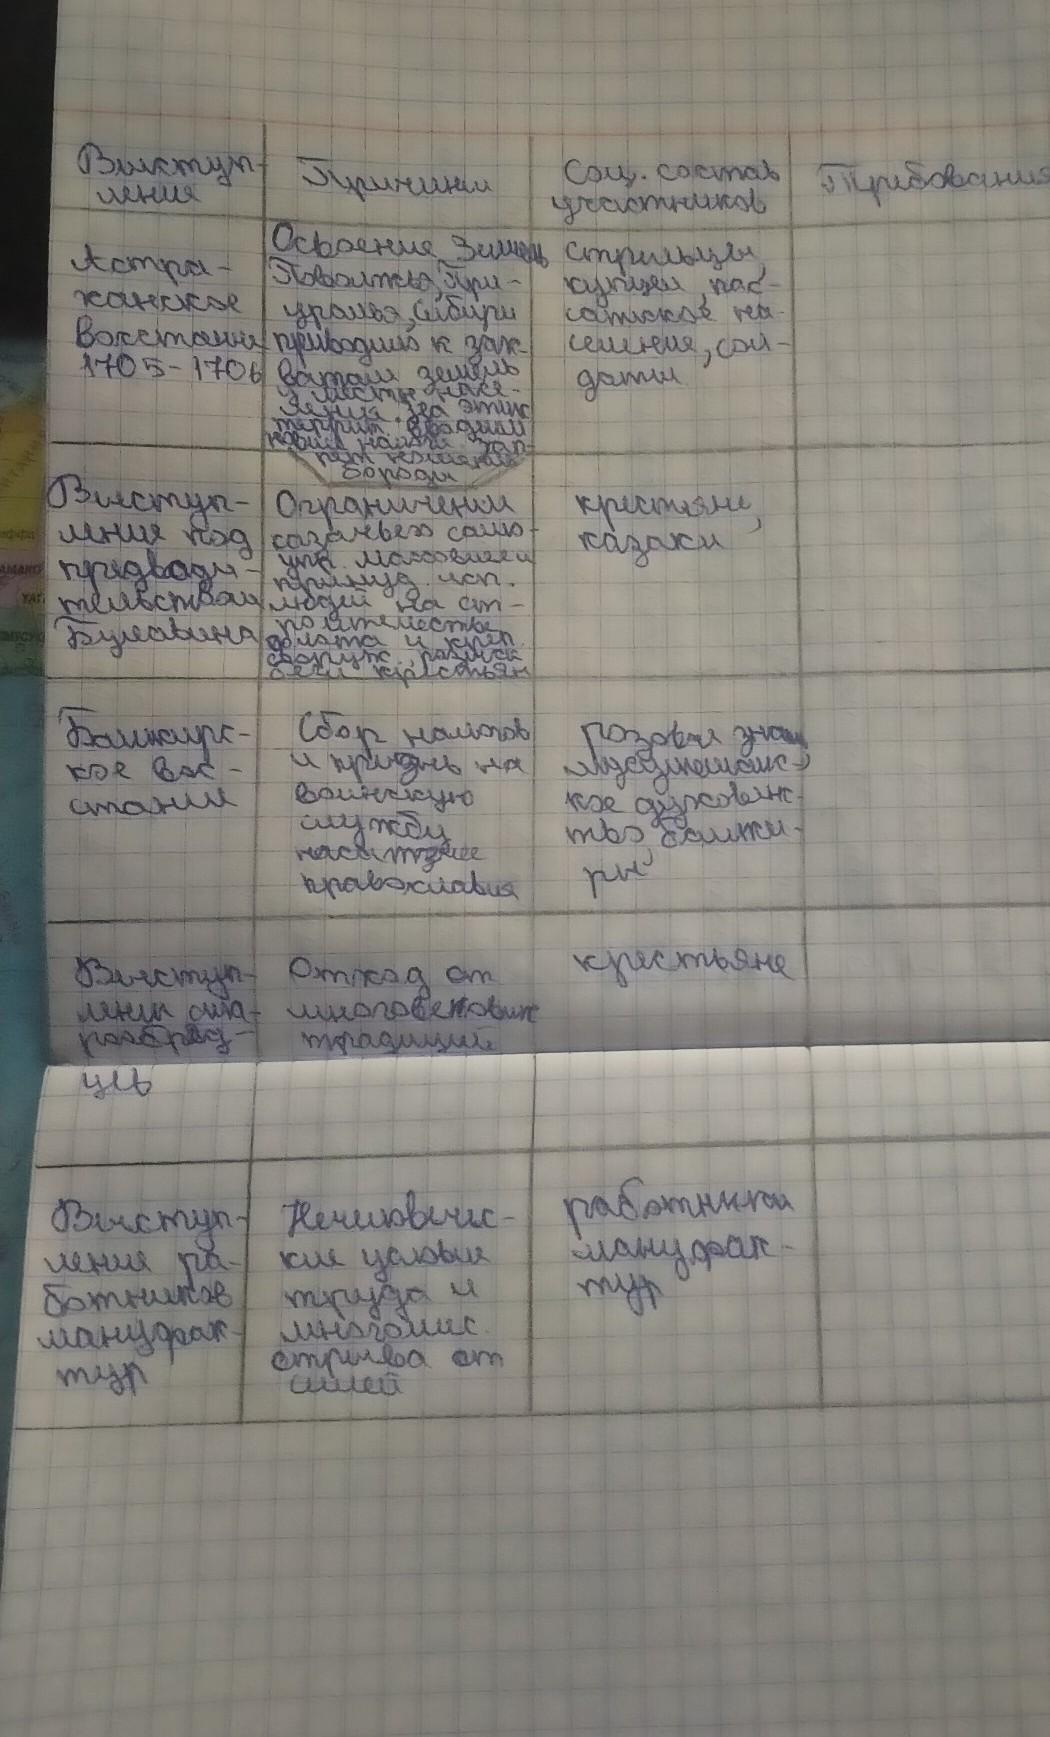 Выступ-
ления
Причины
Соц. состав
участников
Требования
Астра-
ханское
восстание
1705-1706
Освоение земель
Поволжья, При-
уралья, Сибири
приводило к зах-
ватам земель
у местн. насе-
ления. На этих
террит. вводили
новые налоги. Зап-
рет ношения
бороды
стрельцы,
купцы, пос-
адское на-
селения, сол-
даты
Выступ-
ление под
предводи-
тельством
Булавина
Ограничении
казачьего само-
упр. массовые и
принуд. исп.
людей на ст-
роительстве
флота и креп.
сооруж., розыск
беглых крестьян
крестьяне,
казаки
Башкирс-
кое вос-
стание
Сбор налогов
и
на
воинскую
службу
насаждение
православия
родовая знать
мусульманс-
кое духовенс-
тво, башки-
ры
Выступ-
лении ста-
рообряд-
цев
Отход от
многовековых
традиций
крестьяне
Выступ-
ления ра-
ботников
мануфак-
тур
Нечеловечес-
кие условия
труда и
многомес.
отрыва от
семей
работники
мануфак-
тур